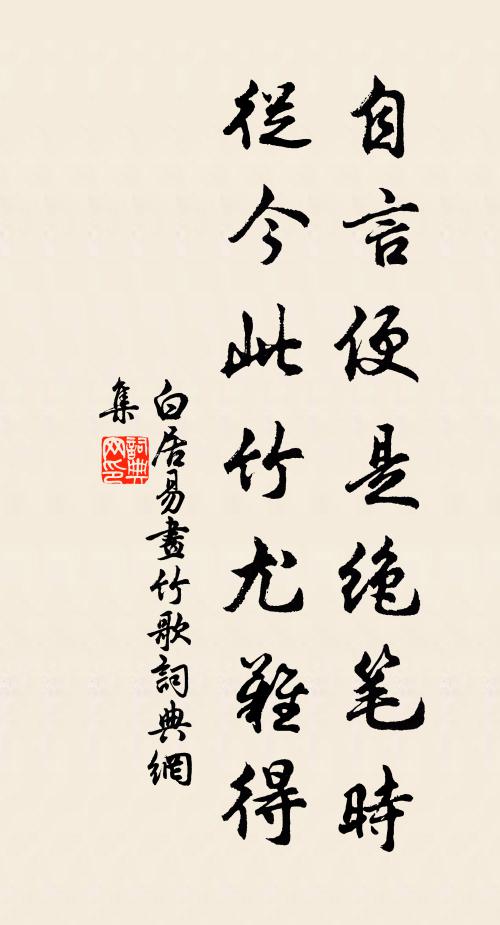 自言便是绝笔時
從今此竹尤難得
白居易畫竹歌詞典網
集
詞典
网印